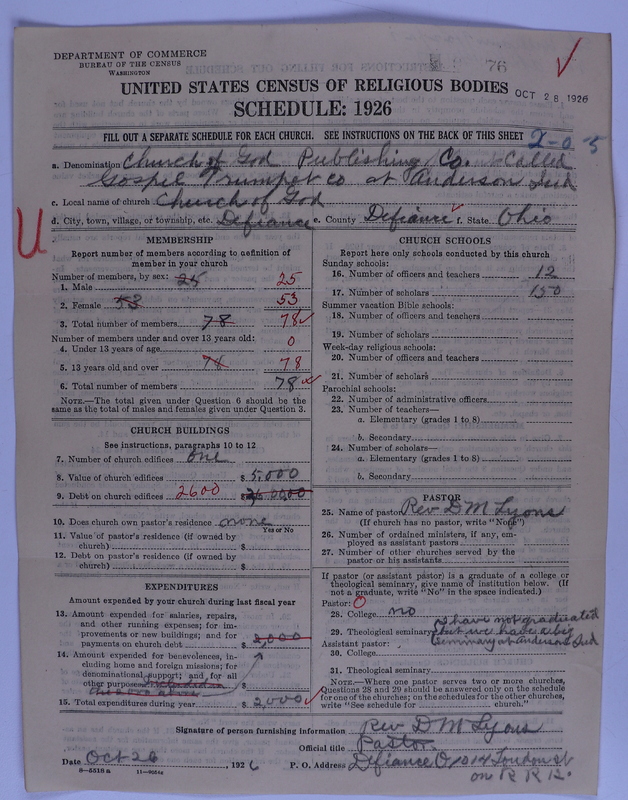 DEPARTMENT OF COMMERCE
BUREAU OF THE CENSUS
WASHINGTON
76
UNITED STATES CENSUS OF RELIGIOUS BODIES
OCT 28 1926
SCHEDULE: 1926
FILL OUT A SEPARATE SCHEDULE FOR EACH CHURCH. SEE INSTRUCTIONS ON THE BACK OF THIS SHEET
2-0-5
a. Denomination Church of God Publishing Co. Called
Gospel Trumpet co at Anderson Ind
c. Local name of church Church of God
d. City, town, village, or township, etc. Defiance e. County Defiance f. State. Ohio
U
MEMBERSHIP
Report number of members according to definition of
member in your church
Number of members, by sex:
1. Male 25 25
2. Female 53 53
3. Total number of members 78 78
Number of members under and over 13 years old:
4. Under 13 years of age 0
5. 13 years old and over 78 78
6. Total number of members 78
NOTE.—The total given under Question 6 should be
the same as the total of males and females given under Question 3.
CHURCH BUILDINGS
See instructions, paragraphs 10 to 12
7. Number of church edifices one
8. Value of church edifices $5,000
9. Debt on church edifices 2600 $
10. Does church own pastor's residence none
Yes or No
11. Value of pastor's residence (if owned by
church) $
12. Debt on pastor's residence (if owned by
church) $
EXPENDITURES
Amount expended by your church during last fiscal year
13. Amount expended for salaries, repairs,
and other running expenses; for im-
provements or new buildings; and for
payments on church debt $2,000
14. Amount expended for benevolences, in-
cluding home and foreign missions; for
denominational support; and for all
other purposes included in
the above
15. Total expenditures during year $2,000
CHURCH SCHOOLS
Report here only schools conducted by this church
Sunday schools:
16. Number of officers and teachers 12
17. Number of scholars 150
Summer vacation Bible schools:
18. Number of officers and teachers
19. Number of scholars
Week-day religious schools:
20. Number of officers and teachers
21. Number of scholars
Parochial schools:
22. Number of administrative officers
23. Number of teachers—
a. Elementary (grades 1 to 8)
b. Secondary
24. Number of scholars—
a. Elementary (grades 1 to 8)
b. Secondary
PASTOR
25. Name of pastor Rev D M Lyons
(If church has no pastor, write "None")
26. Number of ordained ministers, if any, em-
ployed as assistant pastors
27. Number of other churches served by the
pastor or his assistants
If pastor (or assistant pastor) is a graduate of a college or
theological seminary, give name of institution below. (If
not a graduate, write "No" in the space indicated.)
Pastor: 0
28. College no
I have not graduated
29. Theological seminary but we have a big
Assistant pastor: Seminary at anderson Ind
30. College
31. Theological seminary
NOTE.—Where one pastor serves two or more churches,
Questions 28 and 29 should be answered only on the schedule
for one of the churches; on the schedules for the other churches,
write "See schedule for church."
Signature of person furnishing information Rev D M Lyons
Official title Pastor
Date Oct 26, 1926 P. O. Address Defiance O 1014 London st
8—5518a 11—9056a
on R R 12.